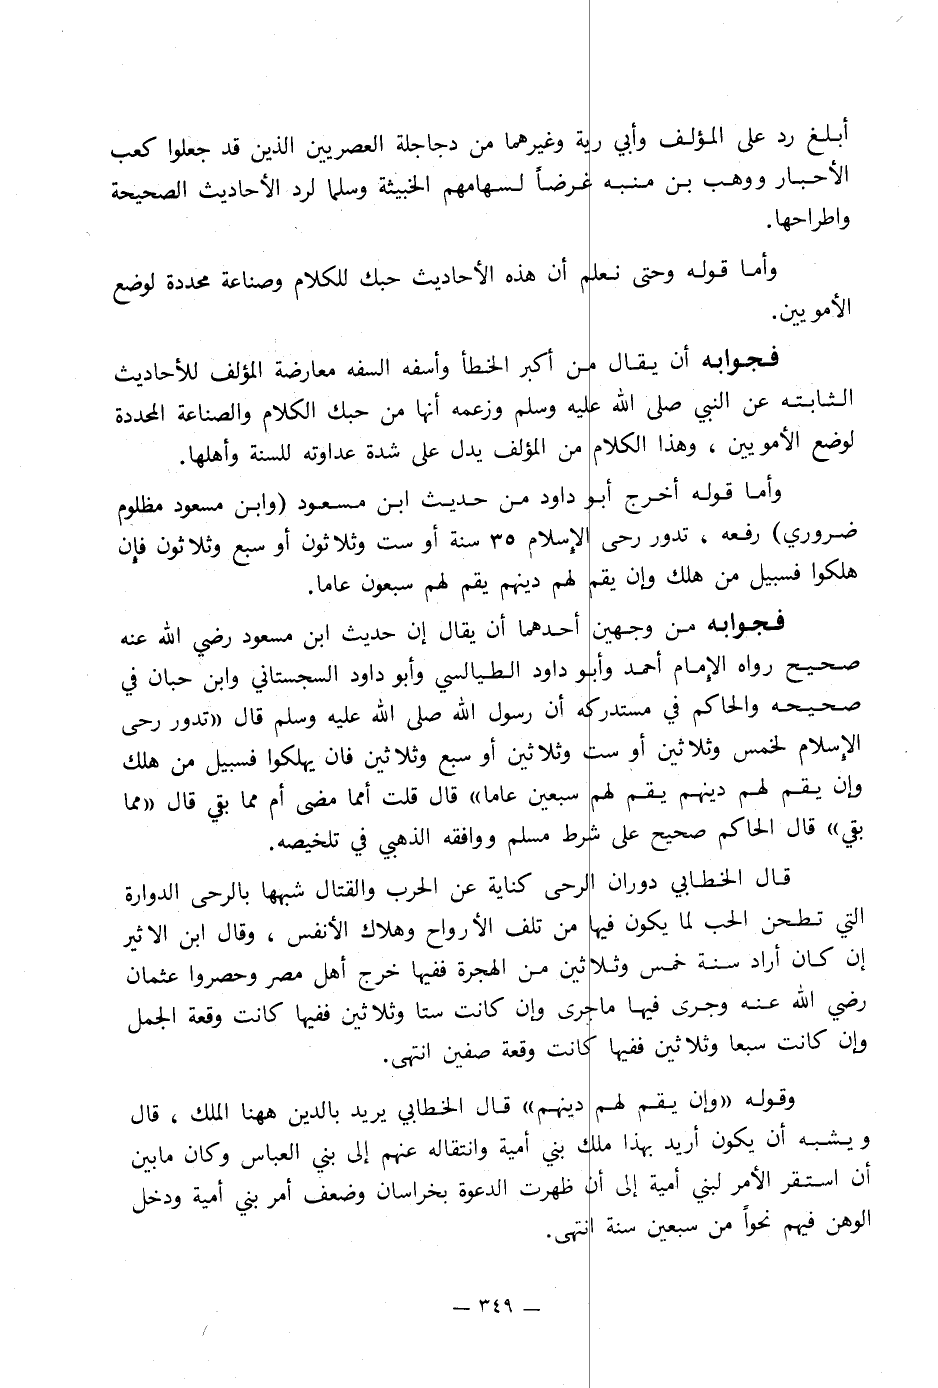 أبلغ رد على المؤلف وأبي رية وغيرهما من دجاجلة العصريين الذين قد جعلوا كعب
الأحبار ووهب بن منبه غرضاً لسهامهم الخبيثة وسلما لرد الأحاديث الصحيحة
واطراحها.
وأما قوله وحتى نعلم أن هذه الأحاديث حبك للكلام وصناعة محددة لوضع
الأمويين.
فجوابه أن يقال من أكبر الخطأ وأسفه السفه معارضة المؤلف للأحاديث
الثابته عن النبي صلى الله عليه وسلم وزعمه أنها من حبك الكلام والصناعة المحددة
لوضع الأمويين ، وهذا الكلام من المؤلف يدل على شدة عداوته للسنة وأهلها.
وأما قوله أخرج أبو داود من حديث ابن مسعود (وابن مسعود مظلوم
ضروري) رفعه ، تدور رحى الإسلام ٣٥ سنة أو ست وثلاثون أو سبع وثلاثون فإن
هلكوا فسبيل من هلك وإن يقم لهم دينهم يقم لهم سبعون عاما.
فجوابه من وجهين أحدهما أن يقال إن حديث ابن مسعود رضي الله عنه
صحيح رواه الإمام أحمد وأبو داود الطيالسي وأبو داود السجستاني وابن حبان في
صحيحه والحاكم في مستدركه أن رسول الله صلى الله عليه وسلم قال «تدور رحى
الإسلام لخمس وثلاثين أو ست وثلاثين أو سبع وثلاثين فان يهلكوا فسبيل من هلك
وإن يقم لهم دينهم يقم لهم سبعين عاما» قال قلت أمما مضى أم مما بقي قال «مما
بقي» قال الحاكم صحيح على شرط مسلم ووافقه الذهبي في تلخيصه.
قال الخطابي دوران الرحى كناية عن الحرب والقتال شبهها بالرحى الدوارة
التي تطحن الحب لما يكون فيها من تلف الأرواح وهلاك الأنفس ، وقال ابن الاثير
إن كان أراد سنة خمس وثلاثين من الهجرة ففيها خرج أهل مصر وحصروا عثمان
رضي الله عنه وجرى فيها ماجرى وإن كانت ستا وثلاثين ففيها كانت وقعة الجمل
وإن كانت سبعا وثلاثين ففيها كانت وقعة صفين انتهى.
وقوله «وإن يقم لهم دينهم» قال الخطابي يريد بالدين ههنا الملك ، قال
ويشبه أن يكون أريد بهذا ملك بني أمية وانتقاله عنهم إلى بني العباس وكان مابين
أن استقر الأمر لبني أمية إلى أن ظهرت الدعوة بخراسان وضعف أمر بني أمية ودخل
الوهن فيهم نحواً من سبعين سنة انتهى.
— ٣٤٩ —